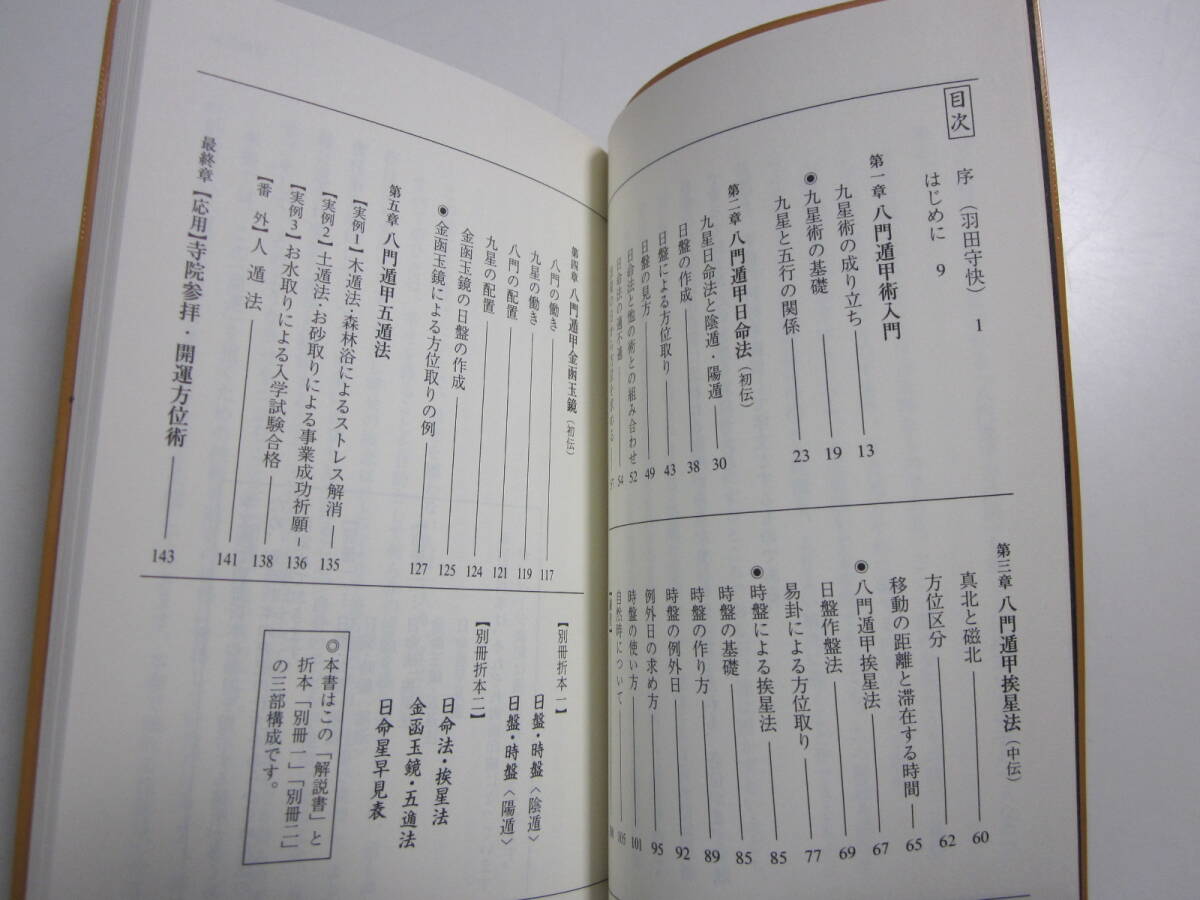 目次
序（羽田守快） 1
はじめに 9
第一章 八門遁甲術入門
九星術の成り立ち 13
◉九星術の基礎 19
九星と五行の関係 23
第二章 八門遁甲日命法（初伝）
九星日命法と陰遁・陽遁 30
日盤の作成 38
日盤による方位取り 43
日盤の見方 49
日命法と他の術との組み合わせ 52
日命法の適不適 54
第三章 八門遁甲挨星法（中伝）
真北と磁北 60
方位区分 62
移動の距離と滞在する時間 65
◉八門遁甲挨星法 67
日盤作盤法 69
易卦による方位取り 77
◉時盤による挨星法 85
時盤の基礎 85
時盤の作り方 89
時盤の例外日 92
例外日の求め方 95
時盤の使い方 101
自然時について 105
第四章 八門遁甲金函玉鏡（初伝）
八門の働き 117
九星の働き 119
八門の配置 121
九星の配置 124
金函玉鏡の日盤の作成 125
◉金函玉鏡による方位取りの例 127
第五章 八門遁甲五遁法
【実例1】木遁法・森林浴によるストレス解消 135
【実例2】土遁法・お砂取りによる事業成功祈願 136
【実例3】お水取りによる入学試験合格 138
【番外】人遁法 141
最終章【応用】寺院参拝・開運方位術 143
【別冊折本一】
日盤・時盤〈陰遁〉
日盤・時盤〈陽遁〉
【別冊折本二】
日命法・挨星法
金函玉鏡・五遁法
日命星早見表
◎本書はこの「解説書」と
折本「別冊一」「別冊二」
の三部構成です。